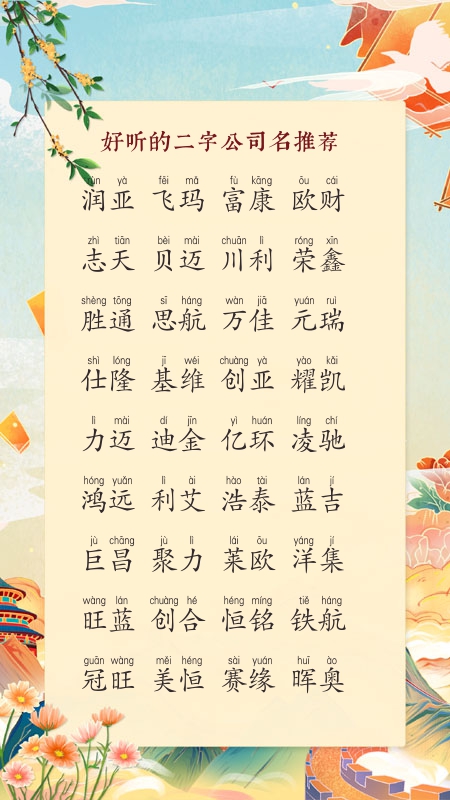 好听的二字公司名推荐
rùn yà fēi mǎ fù kāng ōu cái
润亚 飞玛 富康 欧财
zhì tiān bèi mài chuān lì róng xīn
志天 贝迈 川利 荣鑫
shèng tōng sī háng wàn jiā yuán ruì
胜通 思航 万佳 元瑞
shì lóng jī wéi chuàng yà yào kǎi
仕隆 基维 创亚 耀凯
lì mài dí jīn yì huán líng chí
力迈 迪金 亿环 凌驰
hóng yuǎn lì ài hào tài lán jí
鸿远 利艾 浩泰 蓝吉
jù chāng jù lì lái ōu yáng jí
巨昌 聚力 莱欧 洋集
wàng lán chuàng hé héng míng tiě háng
旺蓝 创合 恒铭 铁航
guān wàng měi héng sài yuán huī ào
冠旺 美恒 赛缘 晖奥